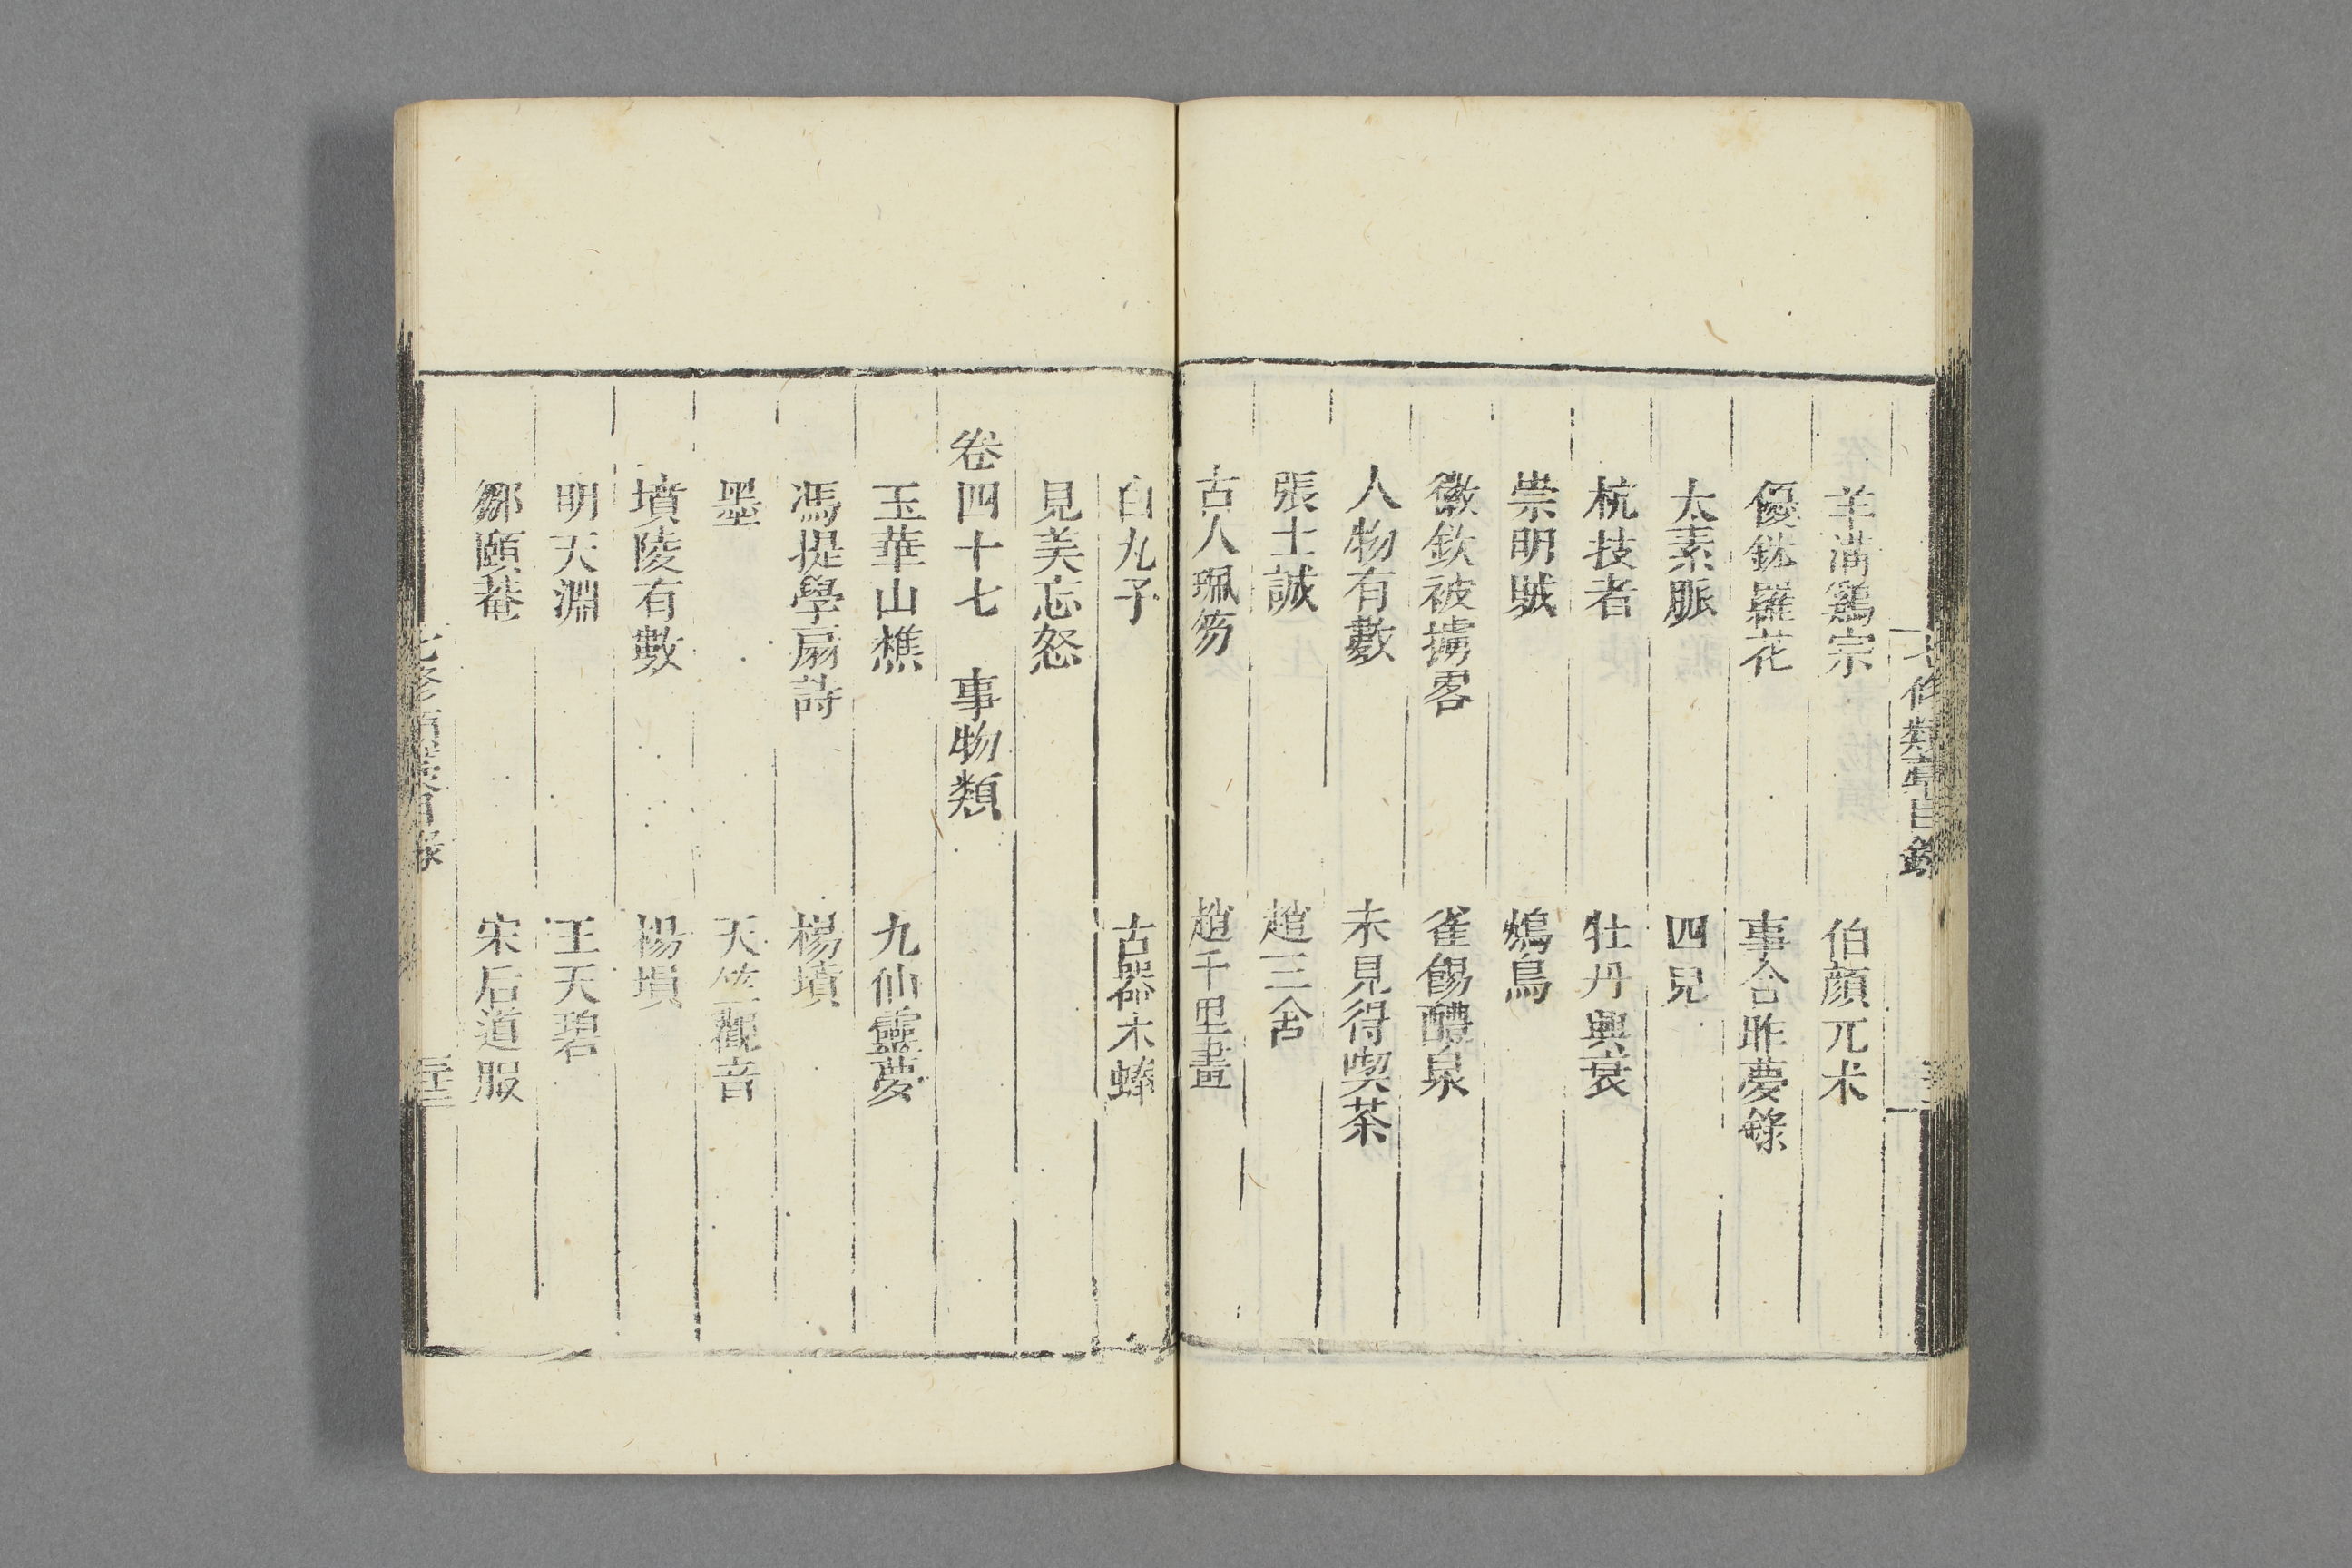 羊溝鷄宗　伯顔兀朮
優鉢羅花　事合昨夢錄
太素脈　四皃
杭技者　牡丹興衰
崇明賊　鴆鳥
徽欽被擄畧　雀餳醴泉
人物有數　未見得喫茶
張士誠　趙三舍
古人珮笏　趙千里畫
白九子　古器木蜂
見美忘怒
卷四十七　事物類
玉華山樵　九仙靈夢
馮提學扇詩　楊墳
墨　天竺觀音
墳陵有數　楊塤
明天淵　王天碧
鄒頤菴　宋后道服
七修類藁目錄